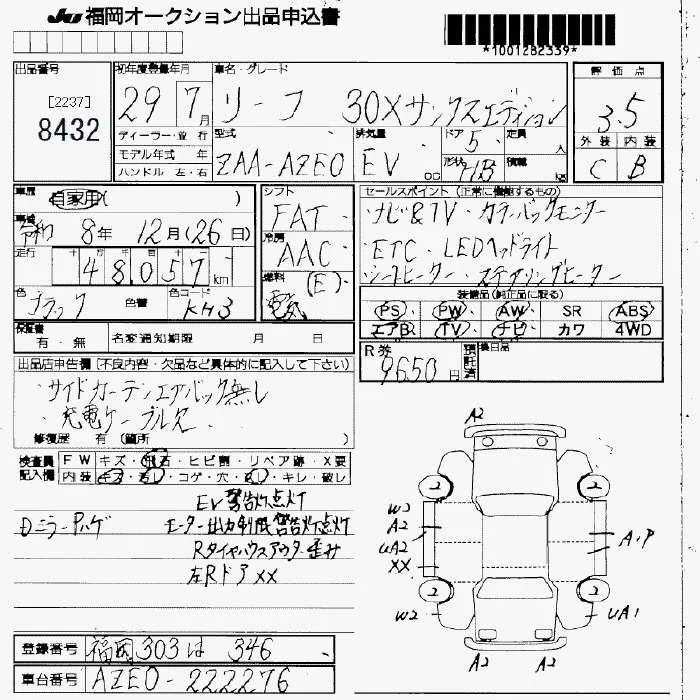 JU 福岡オークション出品申込書
*1001282339*
出品番号
[2237]
8432
初年度登録年月
29 7月
車名・グレード
リーフ 30Xサンクスエディション
評価点
3.5
外装 内装
C B
ディーラー・並行
モデル年式 年
ハンドル 左・右
型式
ZAA-AZE0
排気量
EV
CC
ドア
5
形状
HB
定員
人
積載
kg
車歴
自家用( )
車検
令和 8年 12月(26日)
走行
十 万 千 百 十
48,057km
色
ブラック
色替
色コード
KH3
シフト
FAT
冷房
AAC
燃料
(E)
電気
セールスポイント(正常に機能するもの)
・ナビ&TV・カラーバックモニター
・ETC・LEDヘッドライト
・シートヒーター・ステアリングヒーター
装備品(純正品に限る)
PS PW AW SR ABS
エアB TV ナビ カワ 4WD
保証書
有・無
名変通知期限 月 日
R券
9650円
預託済
後日品
出品店申告欄(不良内容・欠品など具体的に記入して下さい)
・サイドカーテンエアバック無し
・充電ケーブル欠
修復歴 有(箇所 )
検査員記入欄
FW キズ・飛石・ヒビ割・リペア跡・X要
内装 キズ・汚れ・コゲ・穴・・キレ・破レ
EV警告灯点灯
モーター出力制限警告灯点灯
Rタイヤハウスアウター歪み
左RドアXX
A2
2 2
W3
A2
UA2
XX
A1,P
2 2
W2
UA1
A2 A2
登録番号
福岡303は 346
車台番号
AZE0-222276